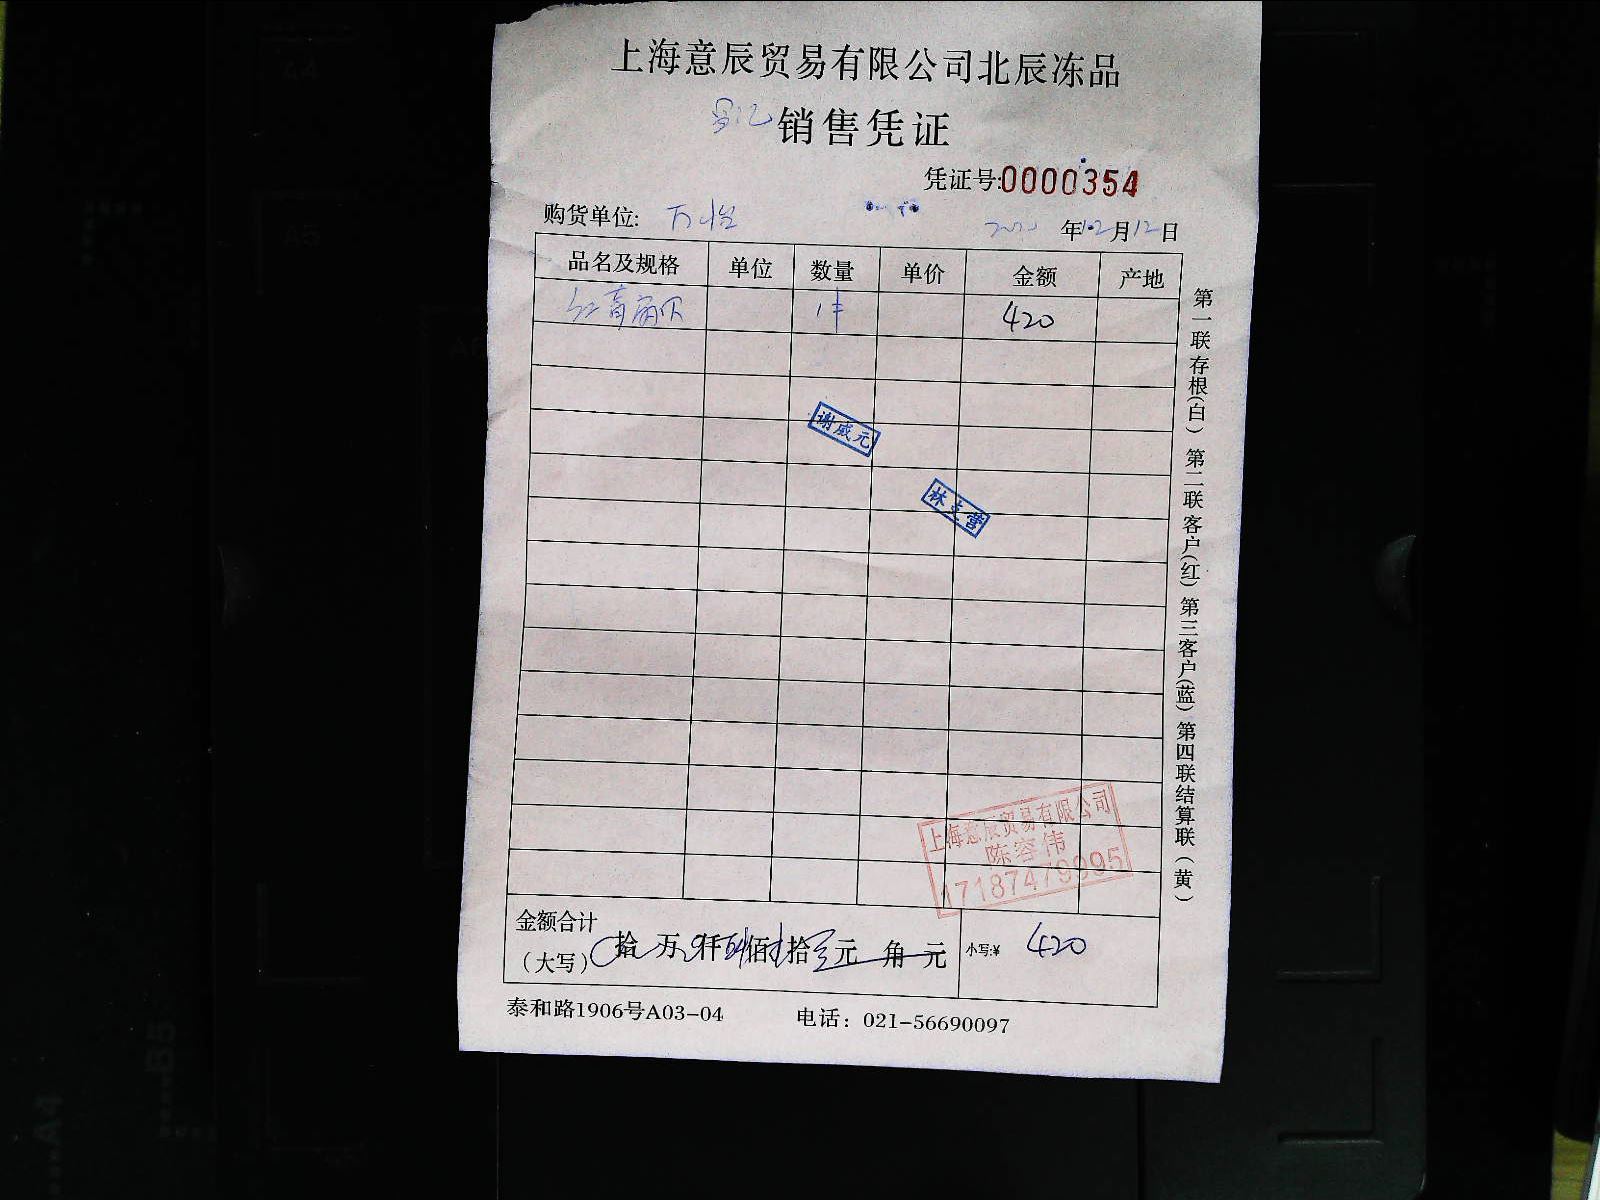 上海意辰贸易有限公司北辰冻品
销售凭证
凭证号:0000354
购货单位: 万怡
年12月12日
品名及规格 单位 数量 单价 金额 产地
红膏扇贝 1件 420
谢威元
林支营
上海意辰贸易有限公司
陈容伟
17187479995
金额合计
(大写) 拾 万 仟 佰 拾 元 角 元 小写:¥ 420
泰和路1906号A03-04 电话：021-56690097
第一联存根(白) 第二联客户(红) 第三客户(蓝) 第四联结算联(黄)